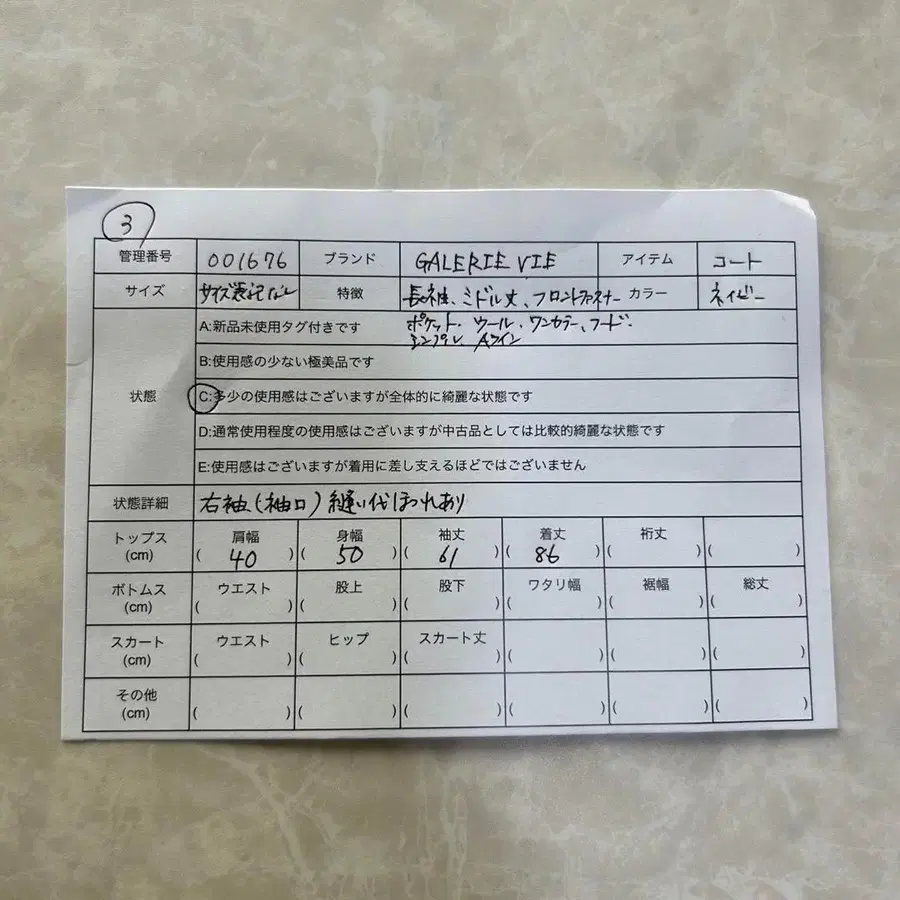 3
管理番号 001676 ブランド GALERIE VIE アイテム コート
サイズ サイズ表記なし 特徴 長袖、ミドル丈、フロントファスナー カラー ネイビー
ポケット、ウール、ワンカラー、フード、
シンプル、Aライン
状態
A:新品未使用タグ付きです
B:使用感の少ない極美品です
C:多少の使用感はございますが全体的に綺麗な状態です
D:通常使用程度の使用感はございますが中古品としては比較的綺麗な状態です
E:使用感はございますが着用に差し支えるほどではございません
状態詳細 右袖(袖口)縫い代ほつれあり
トップス (cm) 肩幅 (40) 身幅 (50) 袖丈 (61) 着丈 (86) 裄丈 ( ) ( )
ボトムス (cm) ウエスト ( ) 股上 ( ) 股下 ( ) ワタリ幅 ( ) 裾幅 ( ) 総丈 ( )
スカート (cm) ウエスト ( ) ヒップ ( ) スカート丈 ( ) ( ) ( ) ( )
その他 (cm) ( ) ( ) ( ) ( ) ( ) ( )